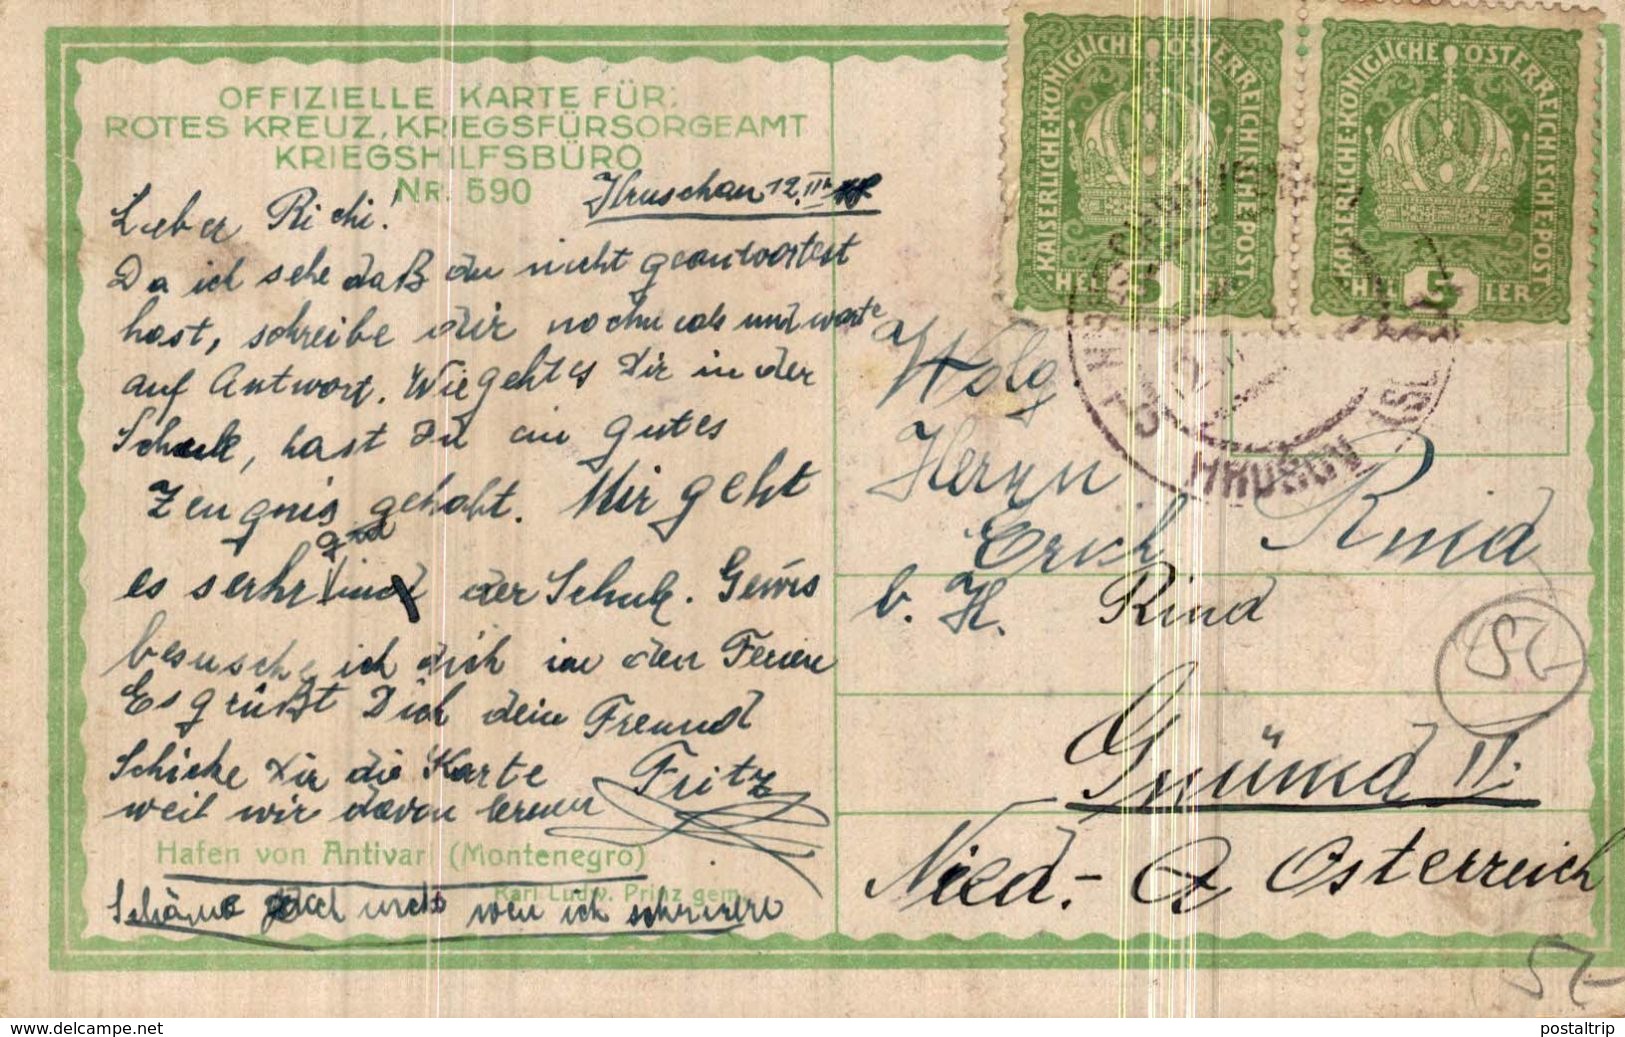 OFFIZIELLE KARTE FÜR:
ROTES KREUZ, KRIEGSFÜRSORGEAMT
KRIEGSHILFSBÜRO
NR. 590
Hruschau 12. II
Lieber Richi!
Da ich sehe daß du nicht geantwortest
hast, schreibe dir nochmals und warte
auf Antwort. Wie geht es Dir in der
Schule, hast Du ein gutes
Zeugnis gehabt. Mir geht
es serhr gut in der Schule. Gewis
besusche ich dich in den Ferien
Es grüßt Dich dein Freund
Schicke Dir die Karte Fritz
weil wir davon lernen
Hafen von Antivari (Montenegro)
Karl Ludw. Prinz gem.
ich
KAISERLICHE KÖNIGLICHE ÖSTERREICHISCHE POST
5
HELLER
KAISERLICHE KÖNIGLICHE ÖSTERREICHISCHE POST
5
HELLER
HRUŠOV (SL
Wolg
Herrn
Erich Rind
b. H. Rind
Gmünd II.
Nied.- Österreich
52-
52-
www.delcampe.net
postaltrip